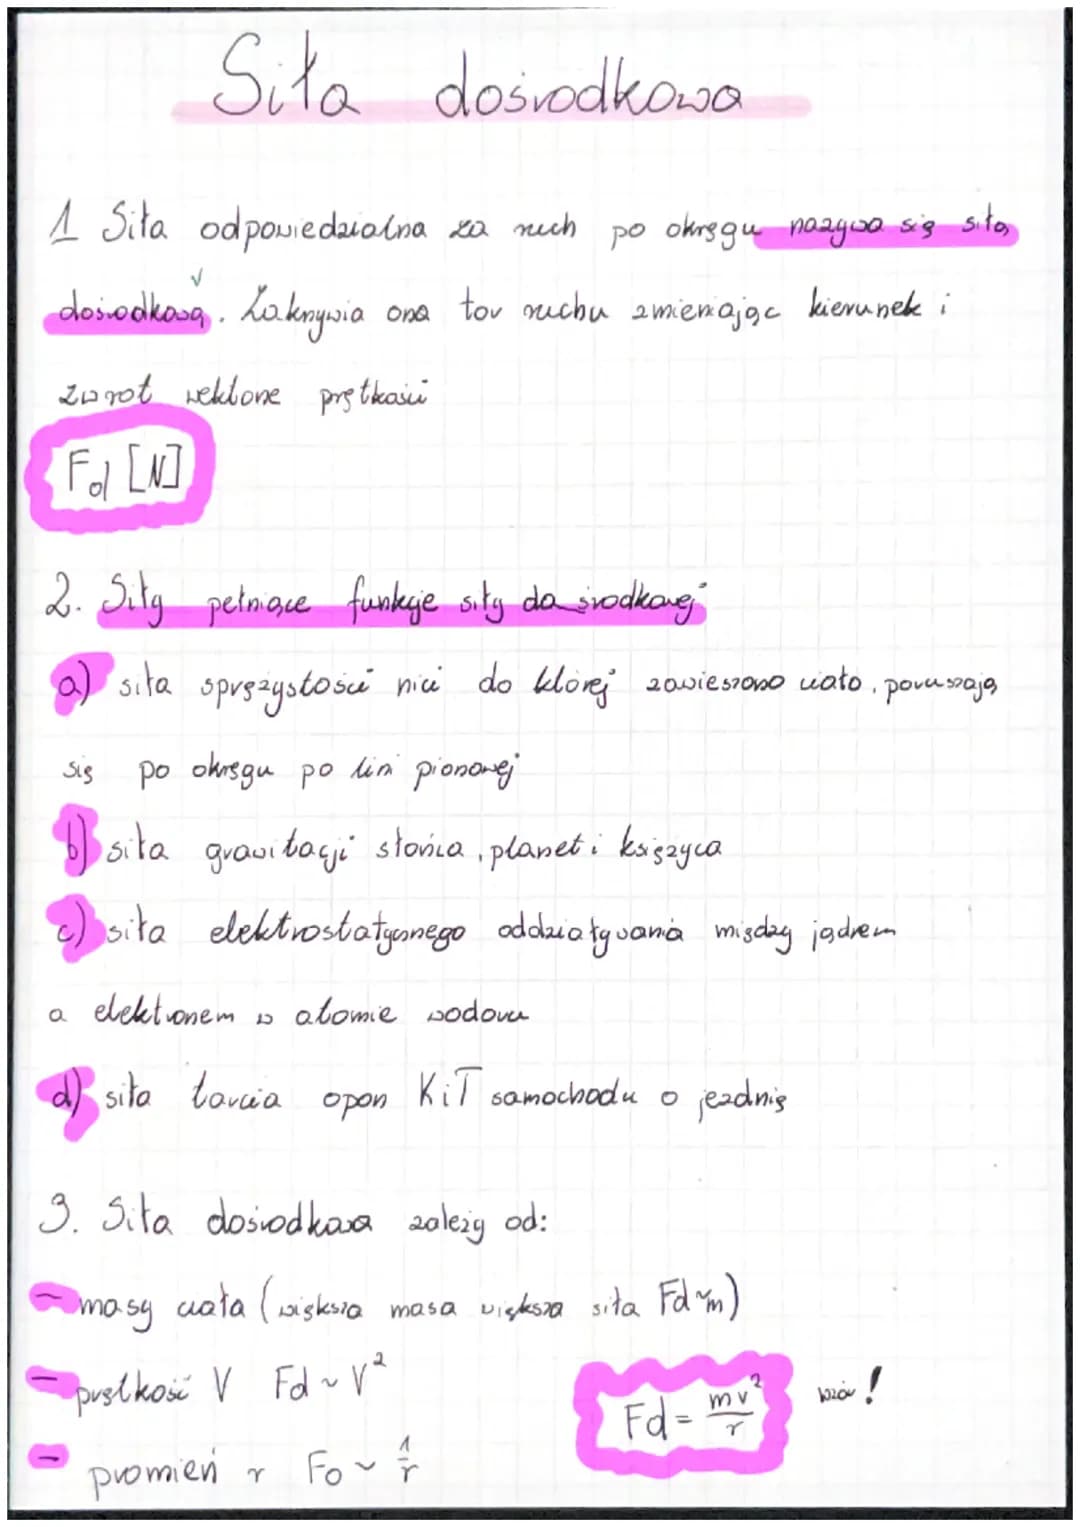 Siła dośrodkowa
1 Siła odpowiedzialna za ruch po okręgu nazywa się siłą
dośrodkową. Zakrzywia ona tor ruchu zmieniając kierunek i
zwrot wektore prętkości
Fd [N]
2. Siły pełniące funkcje siły do środkowej
a) siła sprężystości nici do której zawieszono ciało, poruszają
się po okręgu po lini pionowej
b) siła grawitacji słońca, planet i księżyca
c) siła elektrostatycznego oddziaływania między jądrem
a elektronem w atomie wodoru
d) siła tarcia opon KiT samochodu o jezdnię
3. Siła dośrodkowa zależy od:
- masy ciała (większa masa większa siła Fd~m)
- prętkość V Fd ~ V²
Fd = mv²/r wzór!
- promień r Fo ~ 1/r